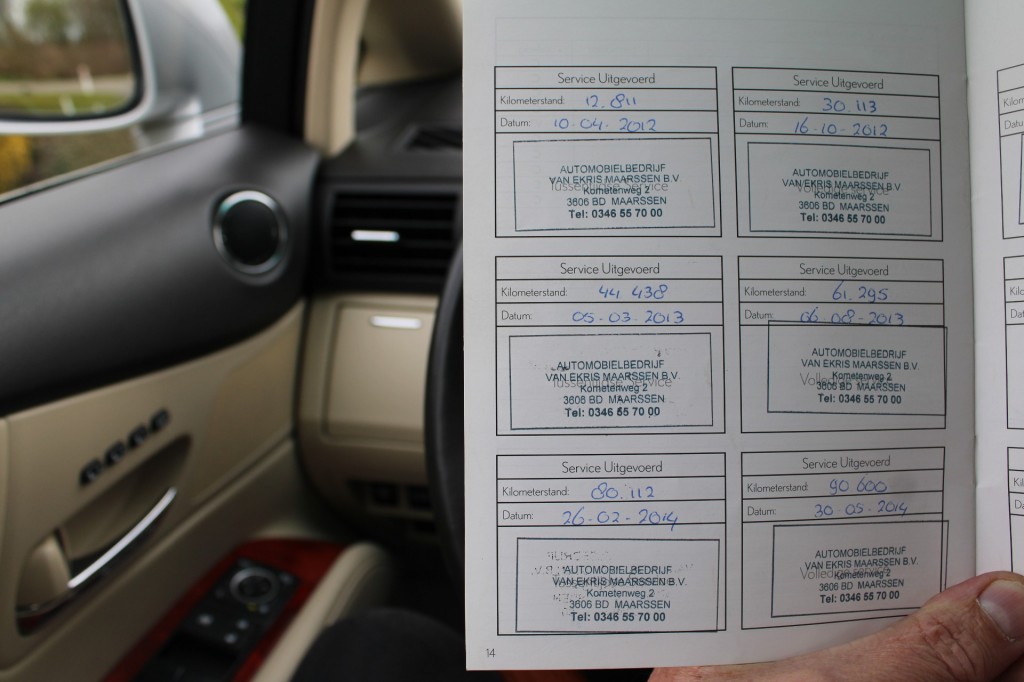 Service Uitgevoerd
Kilometerstand: 12.811
Datum: 10-04-2012
AUTOMOBIELBEDRIJF
VAN EKRIS MAARSSEN B.V.
Tussentijdse Service
Kometenweg 2
3606 BD MAARSSEN
Tel: 0346 55 70 00
Service Uitgevoerd
Kilometerstand: 30.113
Datum: 16-10-2012
AUTOMOBIELBEDRIJF
VAN EKRIS MAARSSEN B.V.
Volledige service
Kometenweg 2
3606 BD MAARSSEN
Tel: 0346 55 70 00
Service Uitgevoerd
Kilometerstand: 44.438
Datum: 05-03-2013
AUTOMOBIELBEDRIJF
VAN EKRIS MAARSSEN B.V.
Tussentijdse Service
Kometenweg 2
3606 BD MAARSSEN
Tel: 0346 55 70 00
Service Uitgevoerd
Kilometerstand: 61.295
Datum: 06-08-2013
AUTOMOBIELBEDRIJF
VAN EKRIS MAARSSEN B.V.
Volledige service
Kometenweg 2
3606 BD MAARSSEN
Tel: 0346 55 70 00
Service Uitgevoerd
Kilometerstand: 80.112
Datum: 26-02-2014
AUTOMOBIELBEDRIJF
VAN EKRIS MAARSSEN B.V.
Kometenweg 2
3606 BD MAARSSEN
Tel: 0346 55 70 00
Service Uitgevoerd
Kilometerstand: 90.600
Datum: 30-05-2014
AUTOMOBIELBEDRIJF
VAN EKRIS MAARSSEN B.V.
Volledige service
Kometenweg 2
3606 BD MAARSSEN
Tel: 0346 55 70 00
14